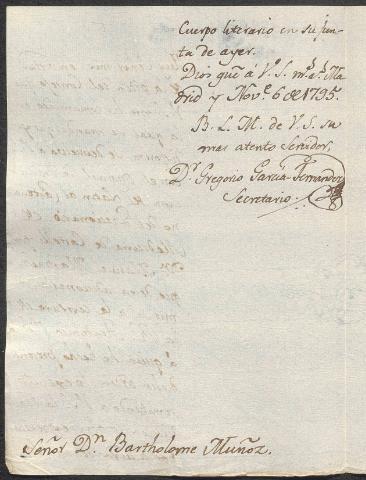 Cuerpo literario en su jun-
ta de ayer.
Dios gue. á V. S. ms. as. Ma-
drid y Nove. 6 de 1795.
B. L. M. de V. S. su
mas atento Servidor,
Dr. Gregorio Garcia Fernandez
Secretario.
Señor Dn. Bartholome Muñoz.